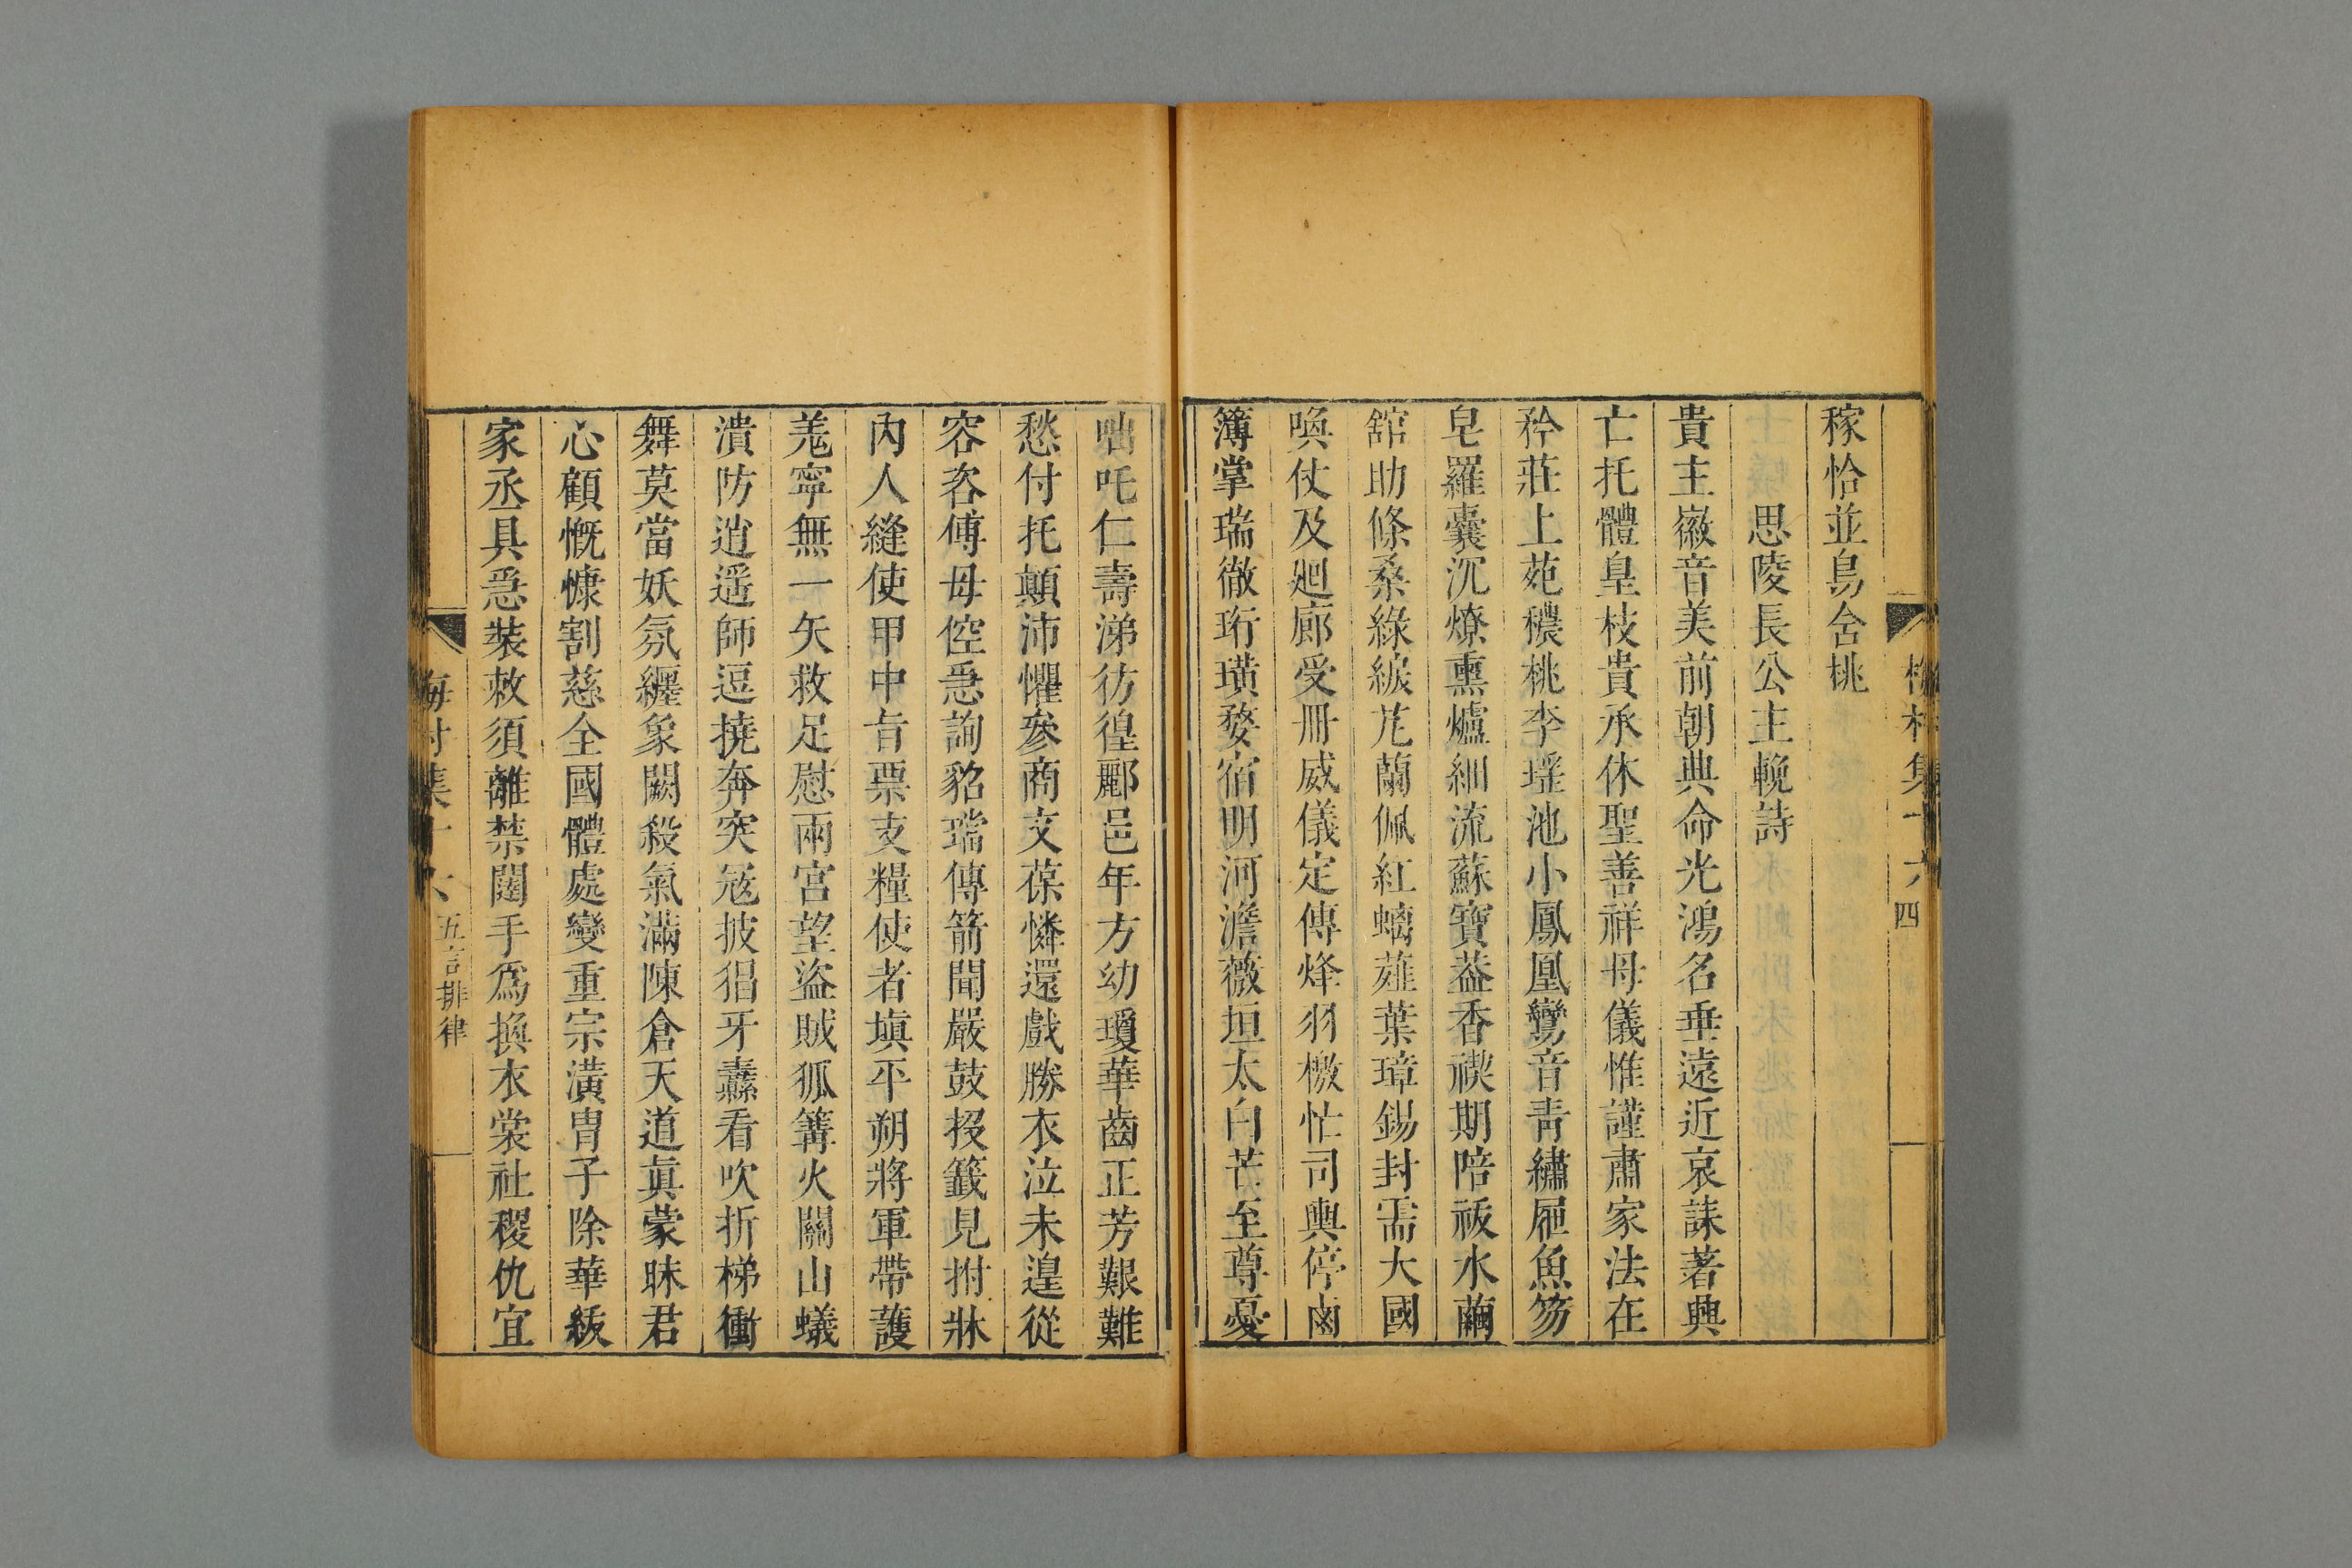 梅村集十六 四
稼恰並島舍桃
思陵長公主輓詩
貴主徽音美前朝典命光鴻名垂遠近哀誄著興
亡托體皇枝貴承休聖善祥母儀惟謹肅家法在
矜莊上苑穠桃李瑶池小鳳凰鸞音青繡屜魚笏
皂羅囊沉燎熏爐細流蘇寶葢香禊期陪祓水繭
舘助條桑綠綟芄蘭佩紅螭薤葉璋錫封需大國
喚仗及廻廊受冊威儀定傳烽羽檄忙司輿停鹵
簿掌瑞徹珩璜婺宿明河澹薇垣太白芒至尊憂
咄吒仁壽涕彷徨酈邑年方幼瓊華齒正芳艱難
愁付托顛沛懼參商文葆憐還戲勝衣泣未遑從
容咨傅母倥怱詢貂璫傳箭聞嚴鼓投籖見拊牀
內人縫使甲中旨票支糧使者塡平朔將軍帶護
羗寧無一矢救足慰兩宮望盜賊狐篝火關山蟻
潰防逍遥師逗撓奔突冦披猖牙纛看吹折梯衝
舞莫當妖氛纏象闕殺氣滿陳倉天道眞蒙昧君
心顧慨慷割慈全國體處變重宗潢胄子除華紱
家丞具急裝敕須離禁闥手爲換衣裳社稷仇宜
梅村集十六 五言排律